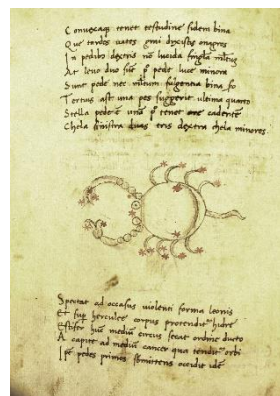 Convexaqz tenet testudine sidera bina
Que tardos vates gemi dixistis onagros
In pedibo dextris nē lucida singla
At levo duo sūt pede luce minora
Sunt pede nec fulgentia bina
Tortus ast una pes suggerit ultima quarto
Stella pede ē tenet ore cadentē
Chela sinistra duas tris dextra chela minores
Spectat ad occasus violenti forma leonis
Et sup hercules corpus protendit hidre
mediū circus secat ordine ducto
A capite ad mediū cancer qua tendit orbi
pedes primos sbmittens occidit idē